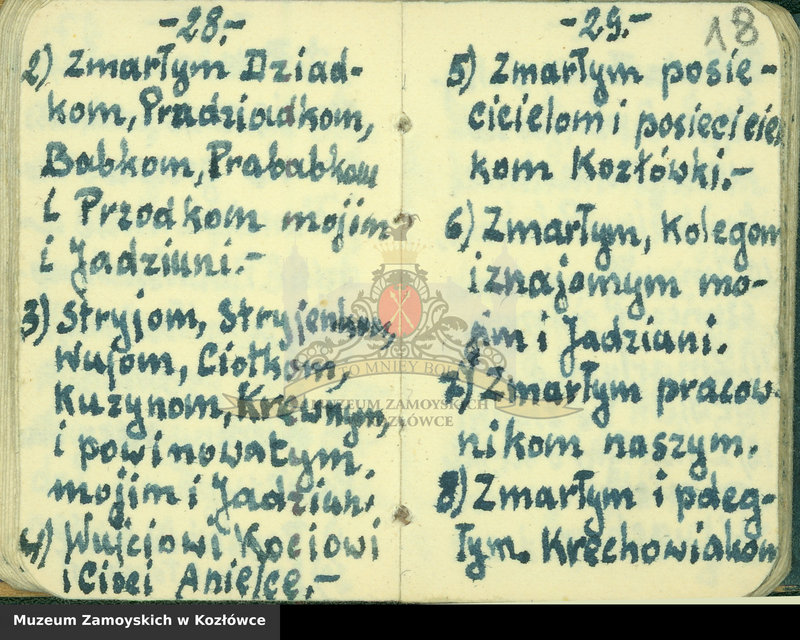 -28.-
2) Zmarłym Dziad-
kom, Pradziadkom,
Babkom, Prababkom
i Przodkom mojim
i Jadziuni.-
3) Stryjom, Stryjenkom,
Wujom, Ciotkom,
Kuzynom, Krewnym,
i powinowatym
mojim i Jadziuni
4) Wujciowi Kociowi
i Cioci Anielce.-
-29.-
18
5) Zmarłym posie-
cicielom i posieciciel
kom Kozłówki.-
6) Zmarłym, Kolegom
i znajomym mo-
jim i Jadziuni.
7) Zmarłym pracow-
nikom naszym.
8) Zmarłym i pdeg-
łym. Kręchowiakom
TO MNIEY BOLI
MUZEUM ZAMOYSKICH
W KOZŁÓWCE
Muzeum Zamoyskich w Kozłówce